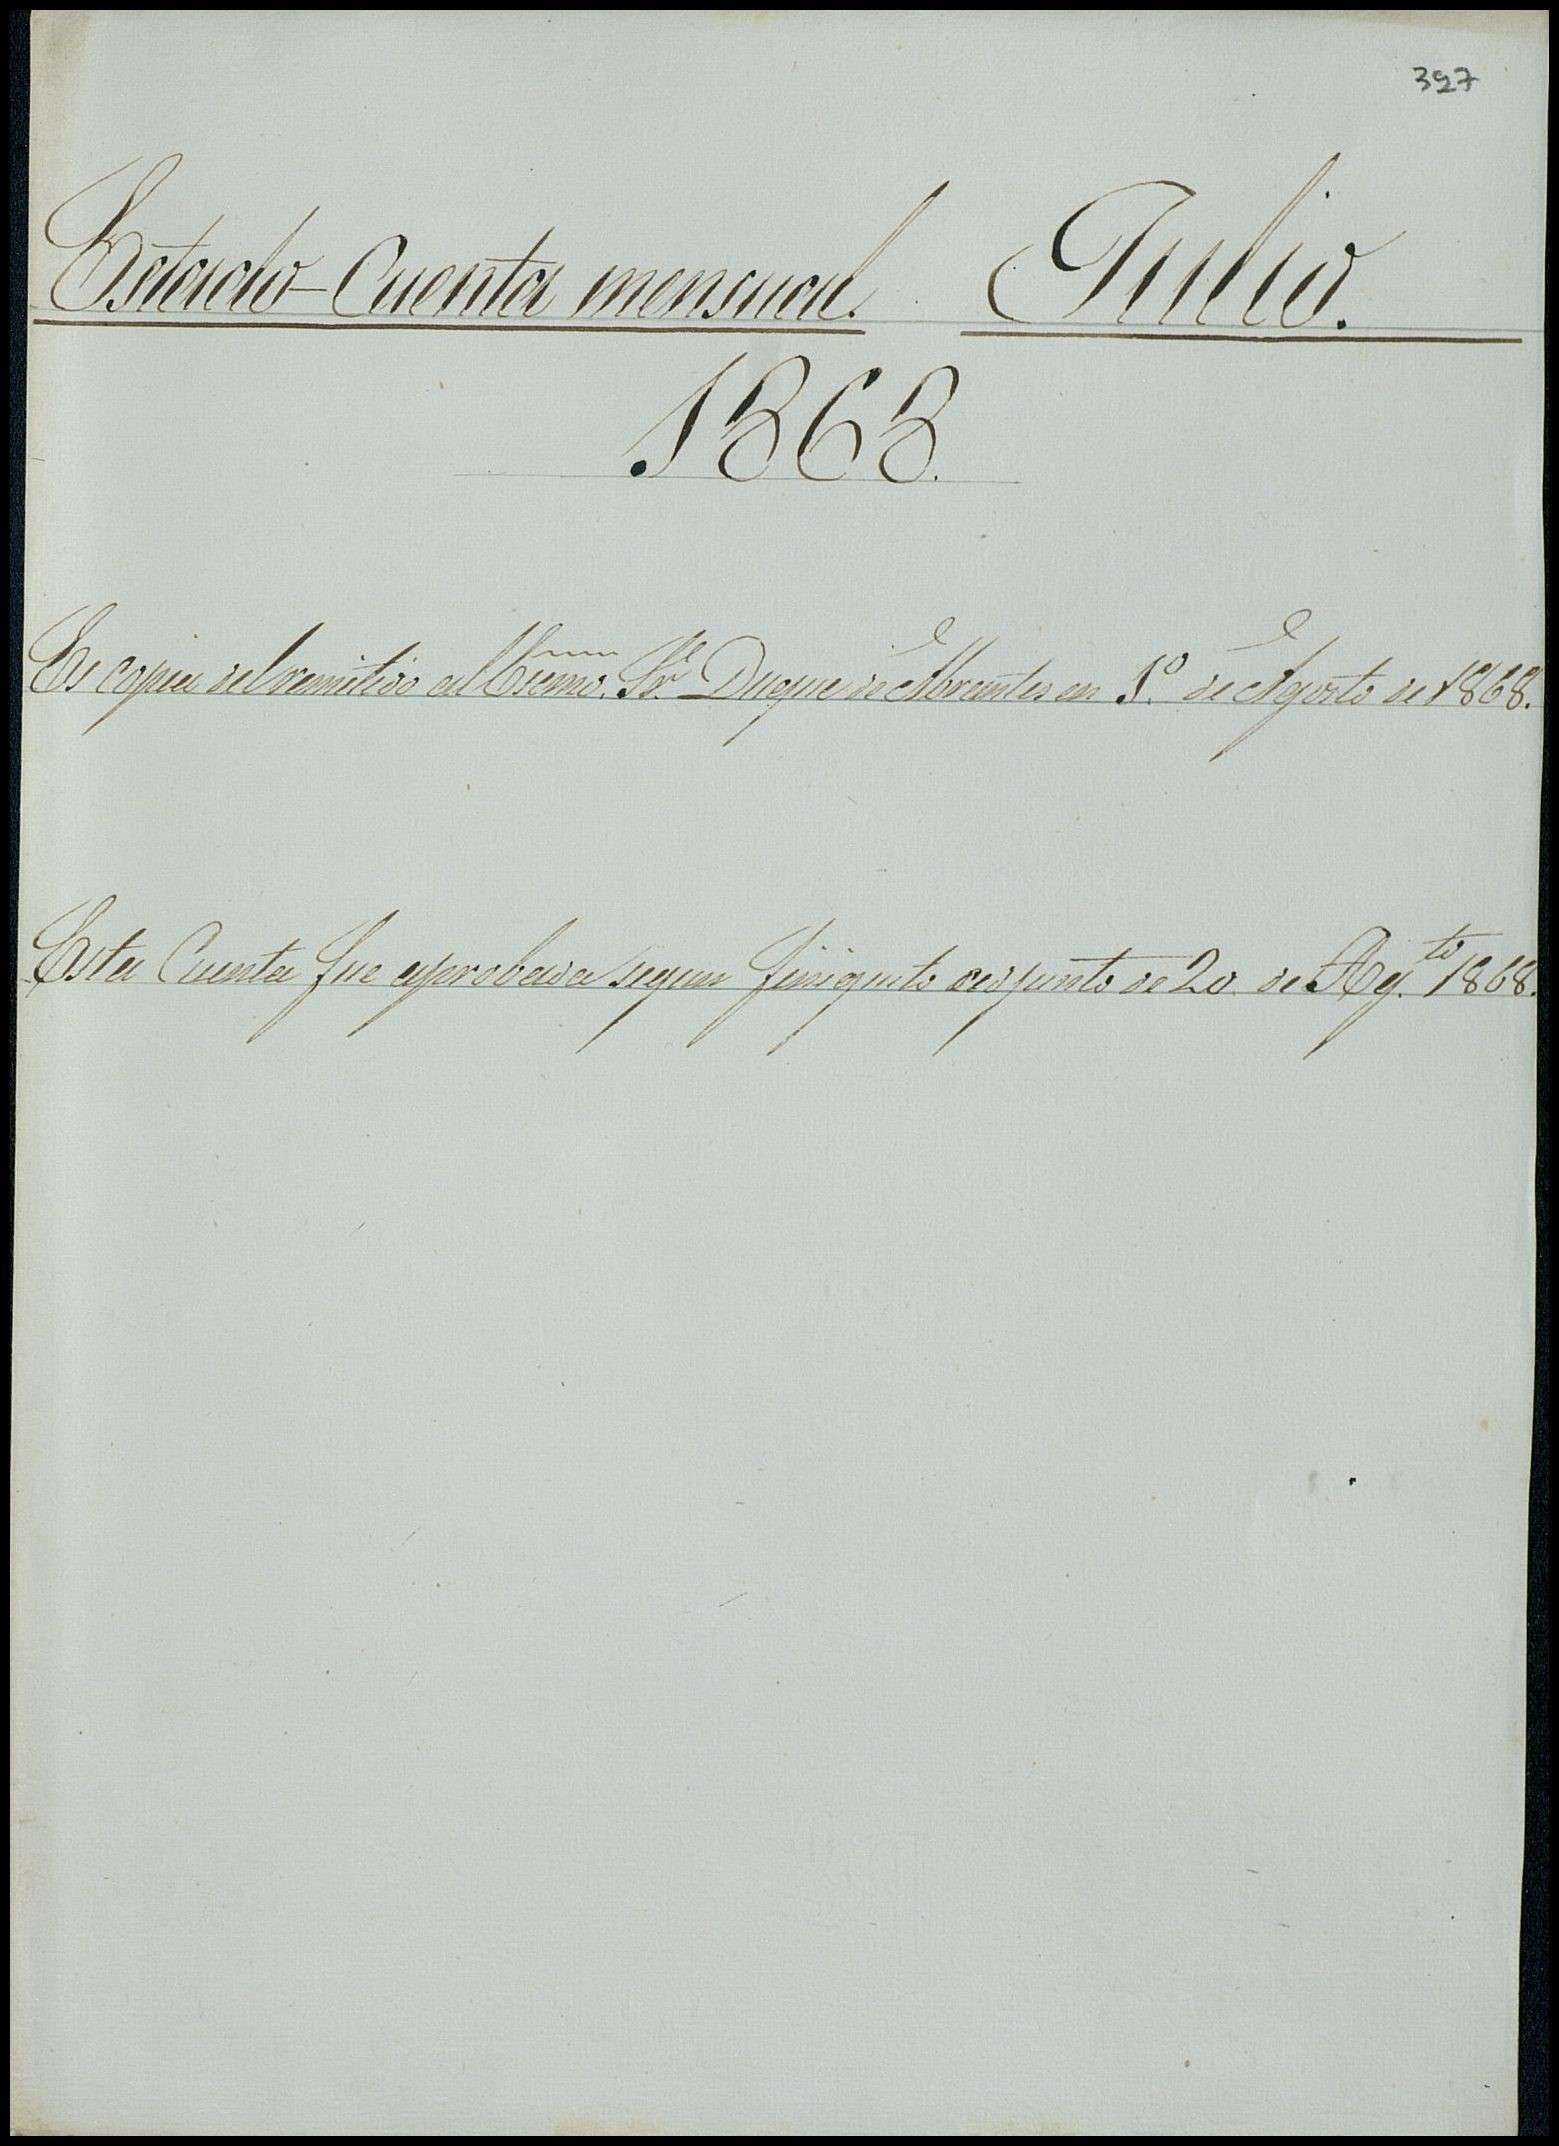 397
Estado-Cuenta mensual. Julio.
1868.
Es copia del remitido al Excmo. Sr. Duque de Abrantes en 1º. de Agosto de 1868.
Esta Cuenta fue aprobada segun finiquito adjunto de 20 de Ag.to 1868.